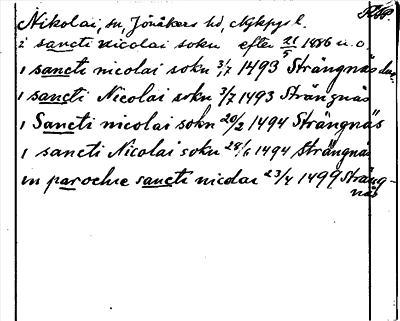 Nikolai, sn, Jönåkers hd, Nykpgs l.
i sancti nicolai sokn efter 21/5 1486 u.o.
i sancti nicolai sokn 3/7 1493 Strängnäs
i sancti Nicolai sokn 3/7 1493 Strängnäs
i Sancti nicolai sokn 20/2 1494 Strängnäs
i sancti Nicolai sokn 28/6 1494 Strängnäs
in parochie sancti nicolai 23/4 1499 Sträng-
näs